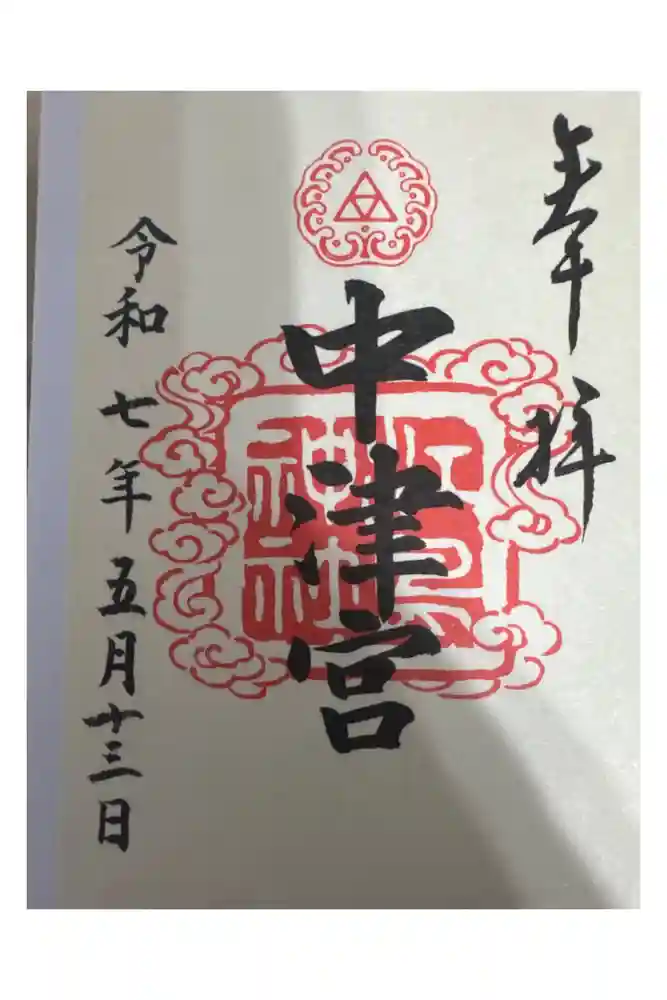 奉拝
中津宮
令和七年五月十三日